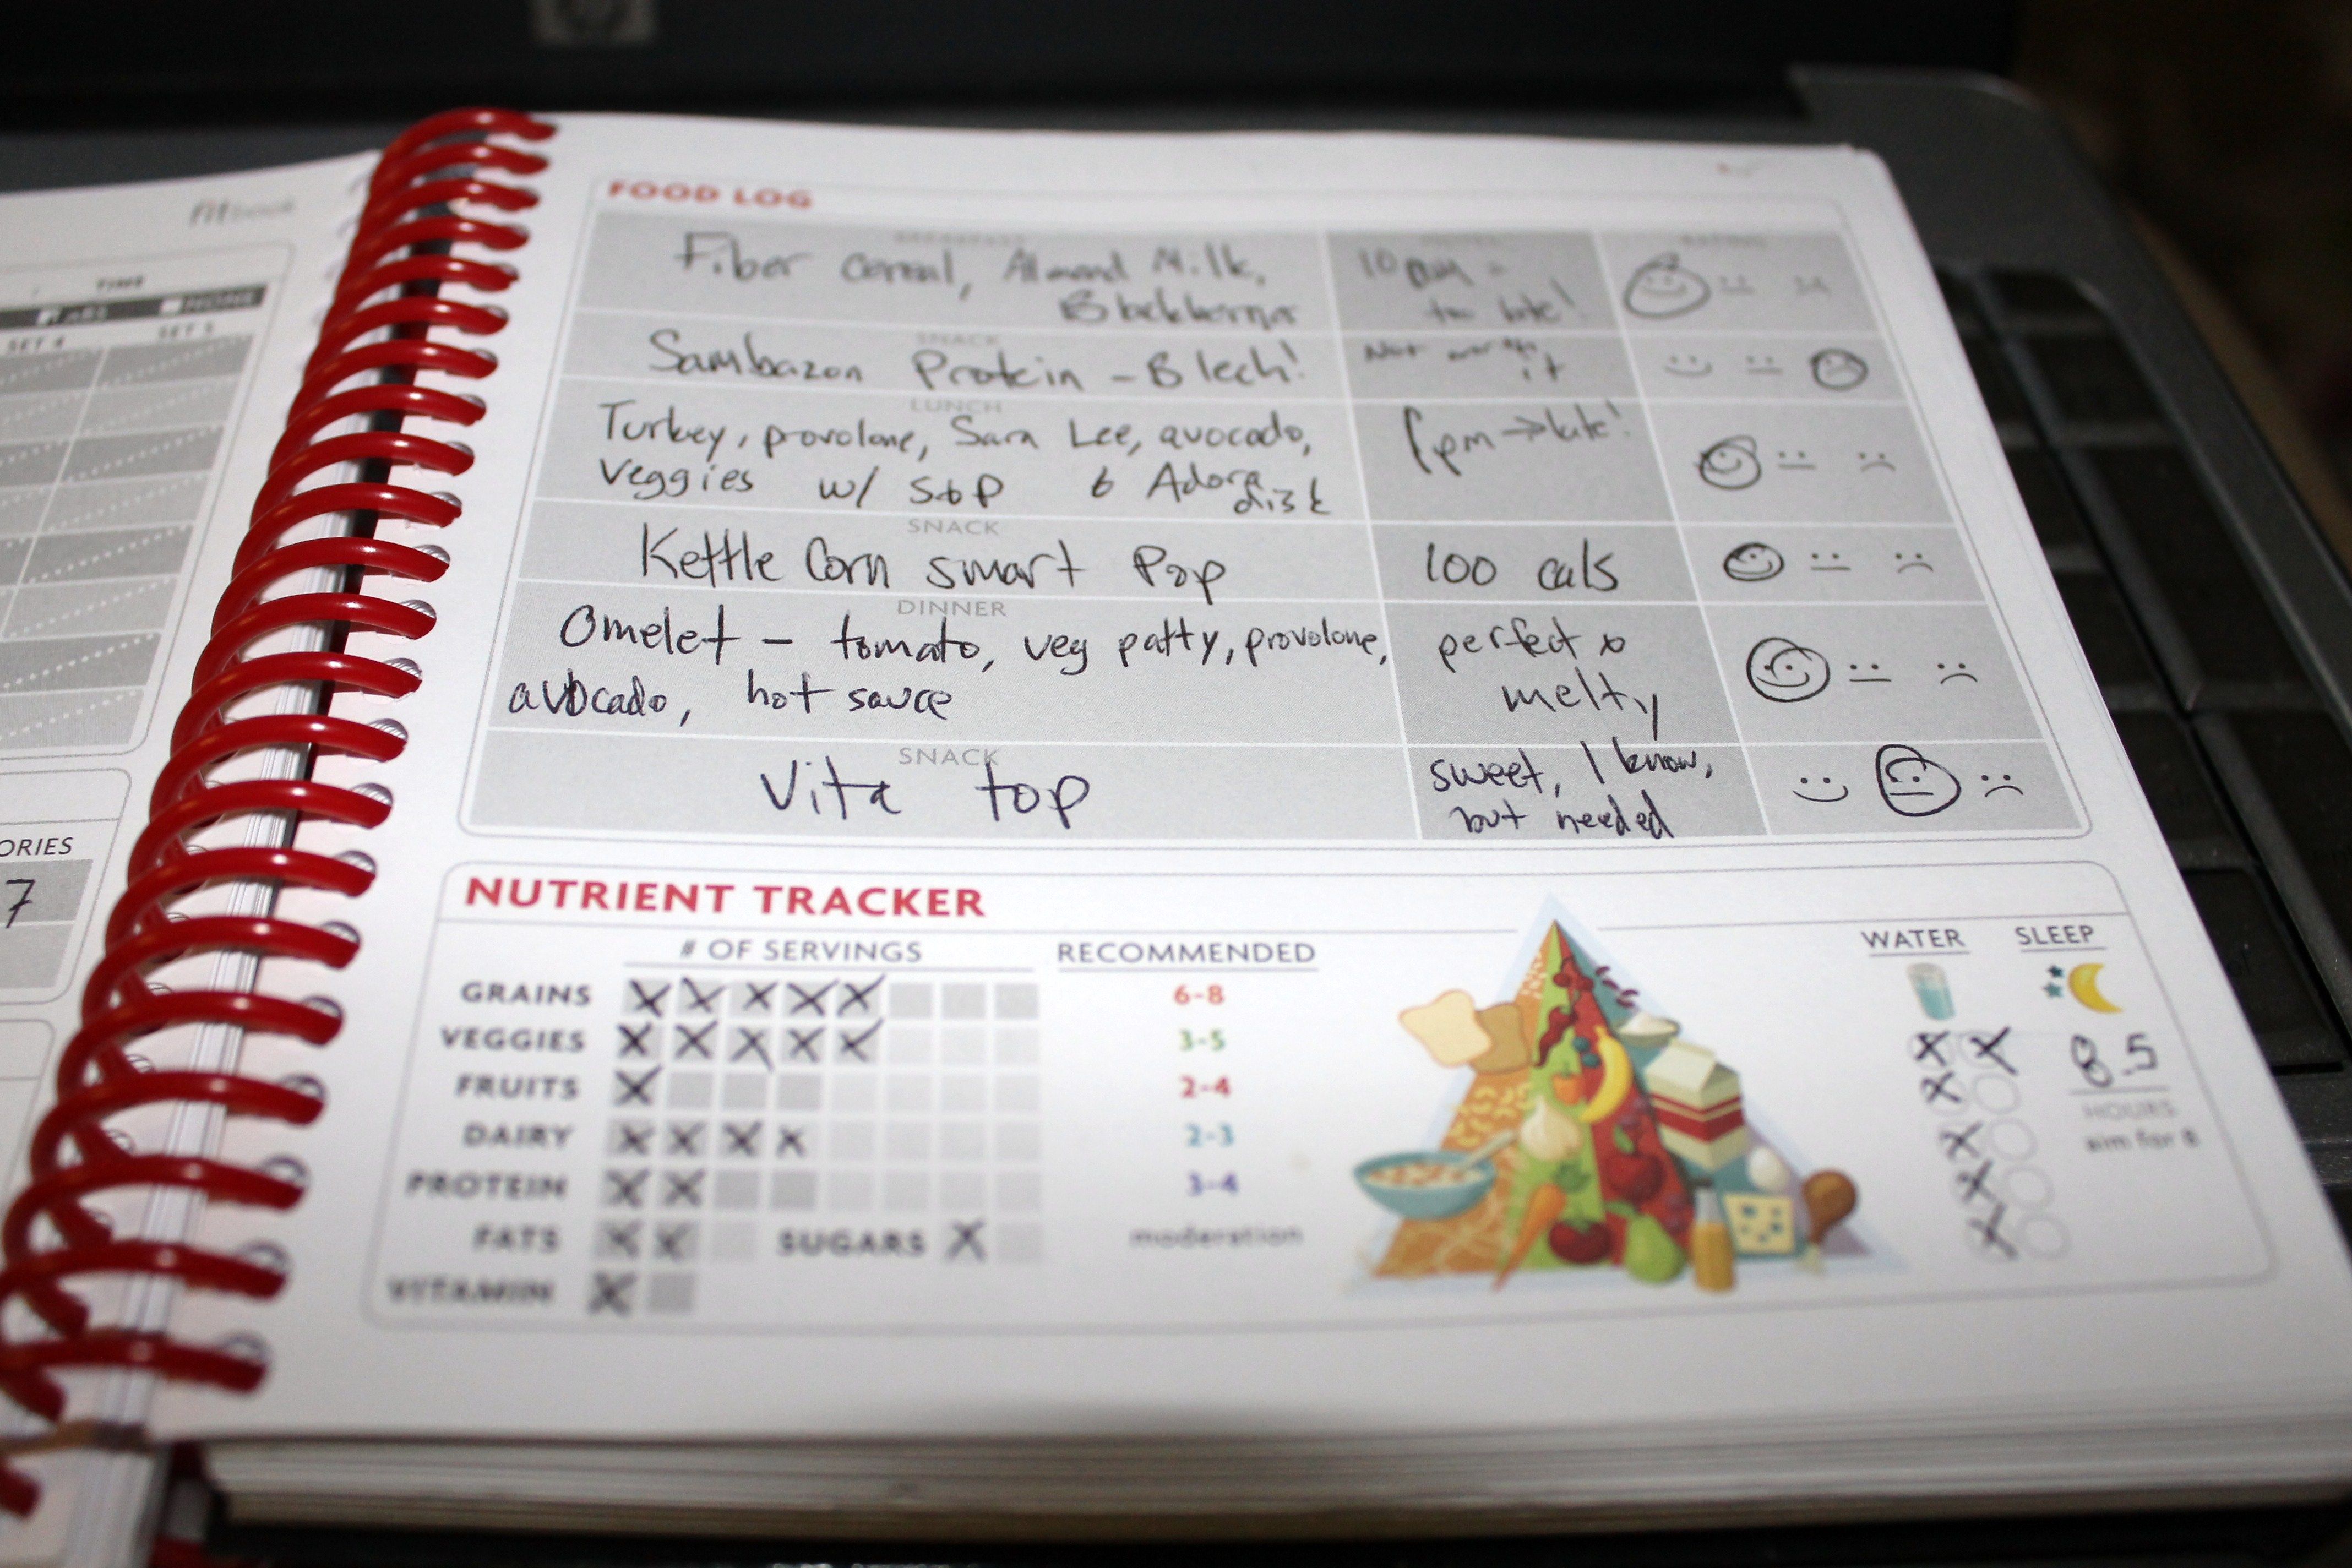 fitbook
TIME
ABS
NONE
SET 4
SET 5
ORIES
7
FOOD LOG
BREAKFAST
NOTES
RATING
Fiber Cereal, Almond Milk,
Blackberries
10 am -
too late!
SNACK
Sambazon Protein - Blech!
Not worth
it
LUNCH
Turkey, provolone, Sara Lee, avocado,
veggies w/ S&P & Adora
disk
1pm → late!
SNACK
Kettle Corn smart Pop
100 cals
DINNER
Omelet - tomato, veg patty, provolone,
avocado, hot sauce
perfect &
melty
SNACK
Vita top
sweet, I know,
but needed
NUTRIENT TRACKER
# OF SERVINGS
RECOMMENDED
WATER
SLEEP
GRAINS
6-8
VEGGIES
3-5
FRUITS
2-4
DAIRY
2-3
PROTEIN
3-4
FATS
SUGARS
moderation
VITAMIN
8.5
HOURS
aim for 8
hp